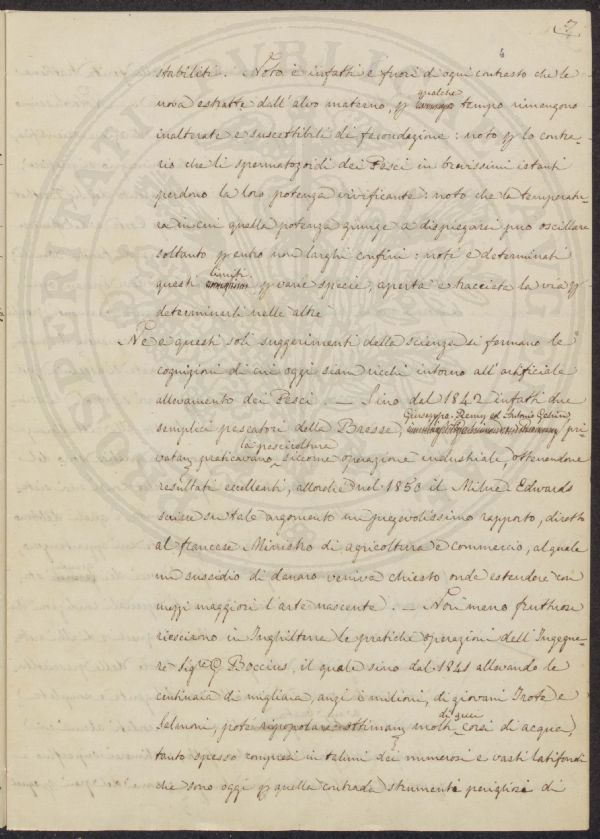 7
stabiliti. Noto è infatti e fuori di ogni contrasto che le
uova estratte dall'alvo materno, p qualche tempo rimangono
inalterate e suscettibili di fecondazione: noto p lo contra-
rio che li spermatozoidi dei Pesci in brevissimi istanti
perdono la loro potenza vivificante: noto che la temperatu-
ra in cui quella potenza giunge a dispiegarsi può oscillare
soltanto p entro non larghi confini: noti e determinati
questi limiti p varie specie, aperta e tracciata la via p
determinarli nelle altre
Ne a questi soli suggerimenti della scienza si fermano le
cognizioni di cui oggi siam ricchi intorno all'artificiale
allevamento dei Pesci. — Sino dal 1842 infatti due
semplici pescatori della Bresse, Giuseppe Remy ed Antonio Gehin, pri-
vatam praticavano la pescicoltura siccome operazione industriale, ottenendone
resultati eccellenti, allorchè nel 1850 il Milne Edwards
scrisse su tale argomento un pregevolissimo rapporto, diretto
al francese Ministro di agricoltura e commercio, al quale
un sussidio di danaro veniva chiesto onde estendere con
mezzi maggiori l'arte nascente. — Non meno fruttuose
riescirono in Inghilterra le pratiche operazioni dell'Ingegne-
re Sigre G Boccius, il quale sino dal 1841 allevando le
centinaia di migliaia, anzi i milioni, di giovani Trote e
Salmoni, potè ripopolare ottimam molti di quei corsi di acqua,
tanto spesso compresi in taluni dei numerosi e vasti latifondi
che sono oggi p quella contrada strumenti perigliosi di